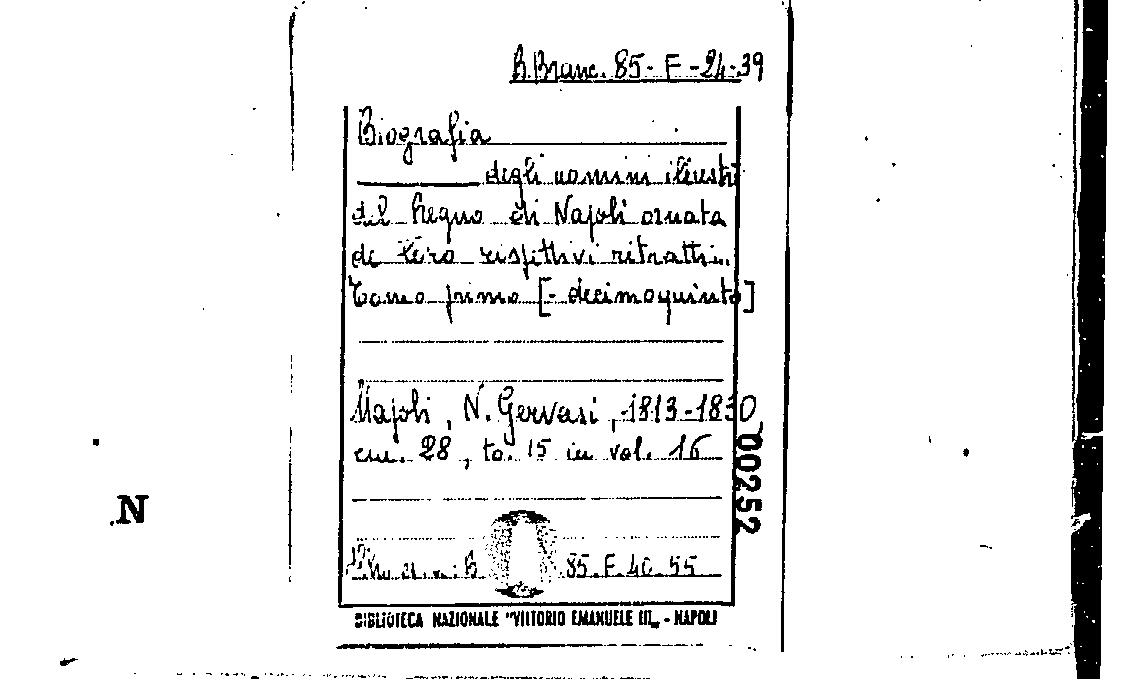 B.Branc. 85-F-24-39
Biografia
degli uomini illustri
del Regno di Napoli ornata
de loro rispettivi ritratti...
Tomo primo [- decimoquinto]
Napoli, N. Gervasi, 1813-1830
cm. 28, to. 15 in vol. 16
00252
N
B 85.F.40.55
BIBLIOTECA NAZIONALE "VITTORIO EMANUELE III„ - NAPOLI